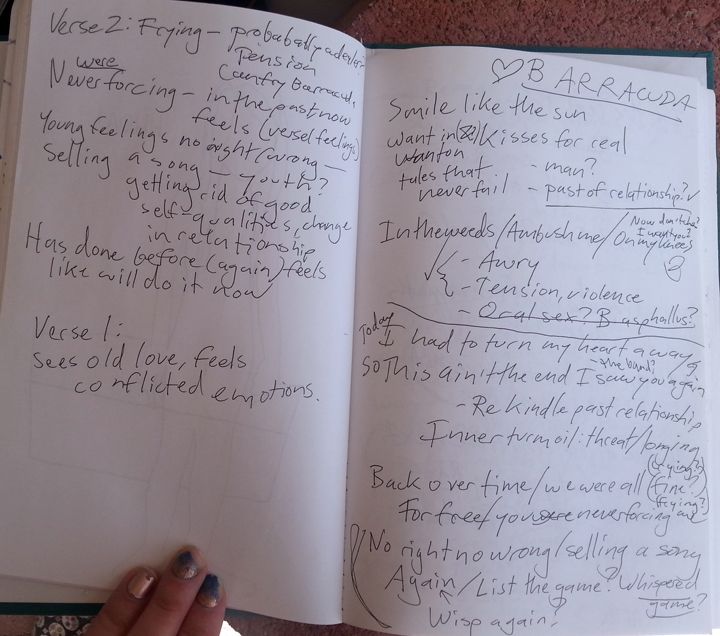 Verse 2: Frying – probably adever
Pension
(anfry Barracuda
were
Never forcing – in the past now
feels (verse 1 feelings)
Young feelings no right/wrong –
Selling a song – youth?
getting rid of good
self-qualities, change
in relationship
Has done before (again) feels
like will do it now
Verse 1:
sees old love, feels
conflicted emotions.
♡ BARRACUDA
Smile like the sun
want in (&) Kisses for real
wanton
tales that – man?
never fail – past of relationship? ✓
Now don't
I want you?
In the weeds/Ambush me/On my knees
– Awry
– Tension, violence
– Oral sex? B as phallus?
Today
I had to turn my heart away
– the band?
So this ain't the end I saw you again
– Rekindle past relationship
Inner turmoil: threat/longing
(trying?)
Back over time/we were all (fine?
(frying?)
For free/you were never forcing
No right no wrong/selling a song
Again/List the game? Whispered
game?
Wisp again?